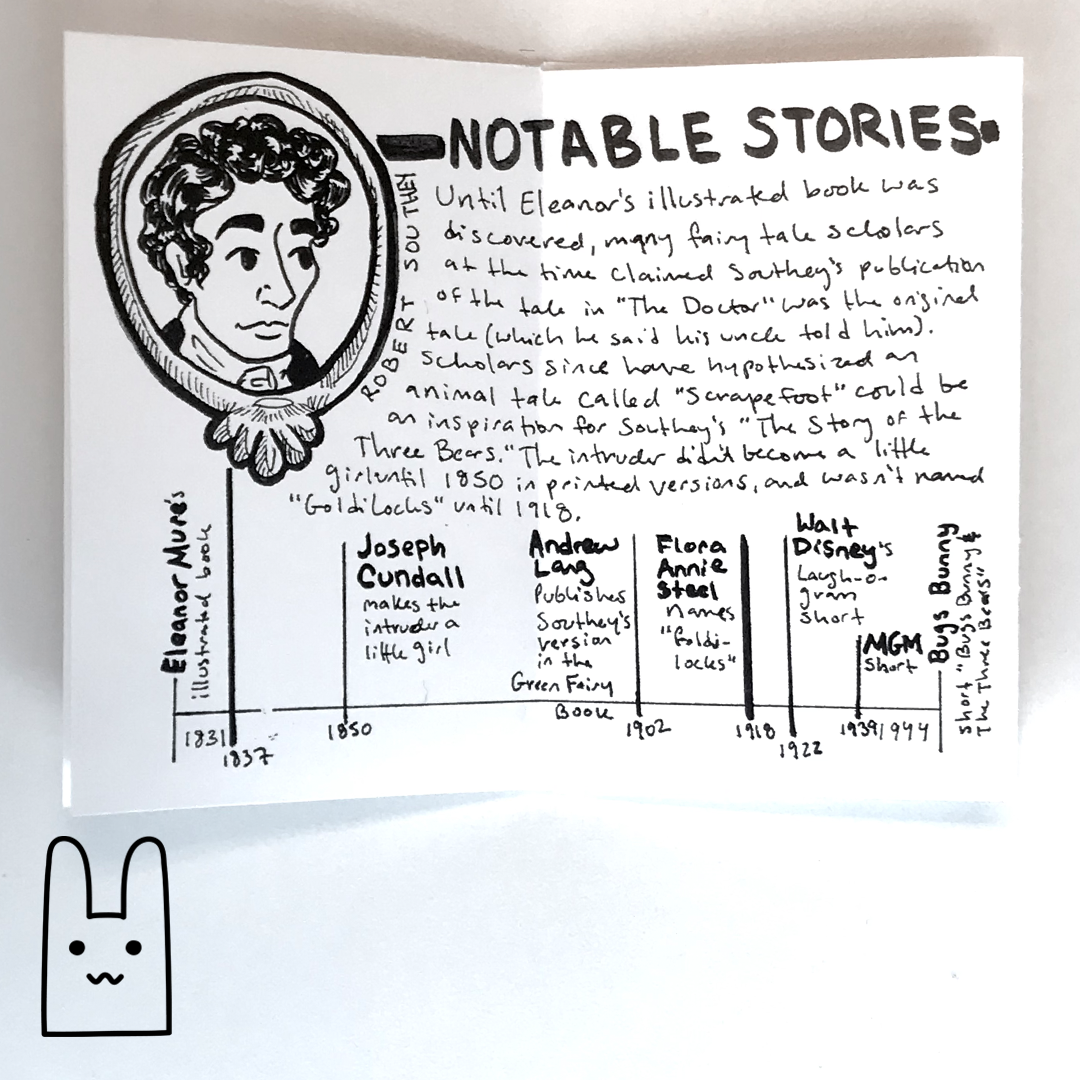 NOTABLE STORIES
ROBERT SOUTHEY
Until Eleanor's illustrated book was
discovered, many fairy tale scholars
at the time claimed Southey's publication
of the tale in "The Doctor" was the original
tale (which he said his uncle told him).
Scholars since have hypothesized an
animal tale called "Scrapefoot" could be
an inspiration for Southey's "The Story of the
Three Bears." The intruder didn't become a little
girl until 1850 in printed versions, and wasn't named
"Goldilocks" until 1918.
Eleanor Mure's
illustrated book
Joseph
Cundall
makes the
intruder a
little girl
Andrew
Lang
Publishes
Southey's
version
in the
Green Fairy
Book
Flora
Annie
Steel
names
"Goldi-
locks"
Walt
Disney's
Laugh-o-
gram
short
MGM
Short
Bugs Bunny
short "Bugs Bunny &
The Three Bears"
1831
1837
1850
1902
1918
1922
1939
1944